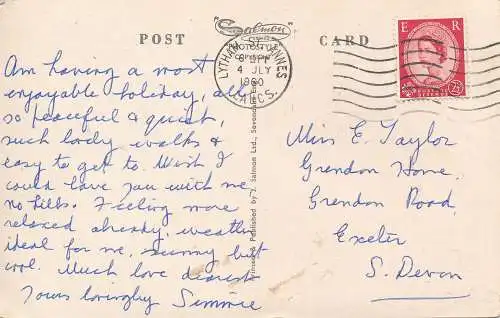 "Salmon"
POST CARD
LYTHAM ST. ANNES
4 JLY
1960
LANCS.
E R
Am having a most
enjoyable holiday, all
so peaceful & quiet,
such lovely walks &
easy to get to. Wish I
could have you with me,
no hills. Feeling more
relaxed already, weather
ideal for me, sunny but
cool. Much love dearest
Yours lovingly
Published by J. Salmon Ltd., Sevenoaks
Miss E. Taylor
Grendon House,
Grendon Road,
Exeter
S. Devon